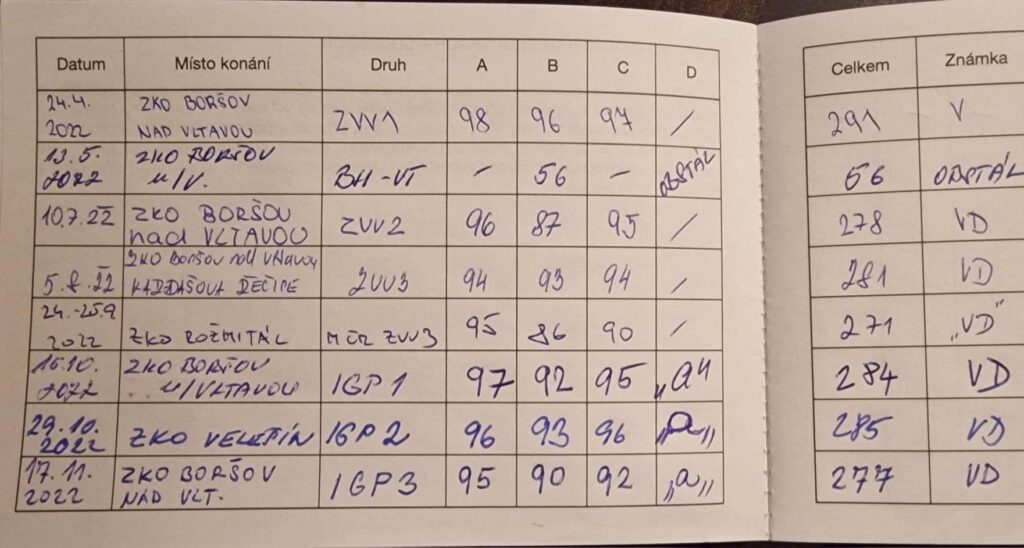 Datum Místo konání Druh A B C D Celkem Známka
24.4. 2022 ZKO BORŠOV NAD VLTAVOU ZVV1 98 96 97 / 291 V
13.5. 2022 ZKO BORŠOV n/V. BH-VT - 56 - OBSTÁL 56 OBSTÁL
10.7.22 ZKO BORŠOV nad VLTAVOU ZVV2 96 87 95 / 278 VD
5.8.22 ZKO Boršov nad Vltavou ZVV3 94 93 94 / 281 VD
24.-25.9 2022 ZKO ROŽMITÁL MČR ZVV3 95 86 90 / 271 „VD"
16.10. 2022 ZKO BORŠOV n/VLTAVOU IGP1 97 92 95 „a" 284 VD
29.10. 2022 ZKO VELEŠÍN IGP2 96 93 96 „a„ 285 VD
17.11. 2022 ZKO BORŠOV NAD VLT. IGP3 95 90 92 „a„ 277 VD